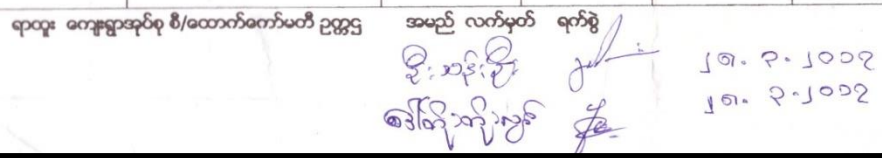 ရာထူး ကျေးရွာအုပ်စု စီ/ထောက်ကော်မတီ ဥက္ကဋ္ဌ အမည် လက်မှတ် ရက်စွဲ
ဦးသန်းဦး ၂၈. ၃. ၂၀၁၇
ဒေါ်တိုးတိုးလွင် ၂၈. ၃. ၂၀၁၇